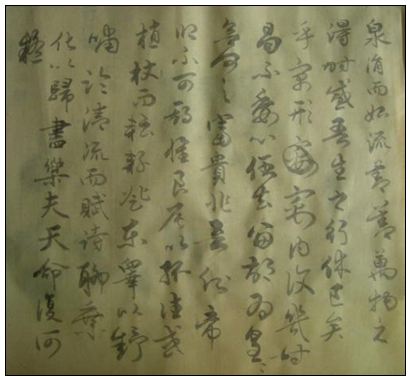 泉涓而始流善萬物之
得時感吾生之行休已矣
乎寓形宇內復幾時
曷不委心任去留胡為皇皇
何之富貴非吾願帝
鄉不可期懷良辰以孤往或
植杖而耘耔登東皋以舒
嘯臨清流而賦詩聊乘
化以歸盡樂夫天命復何
疑